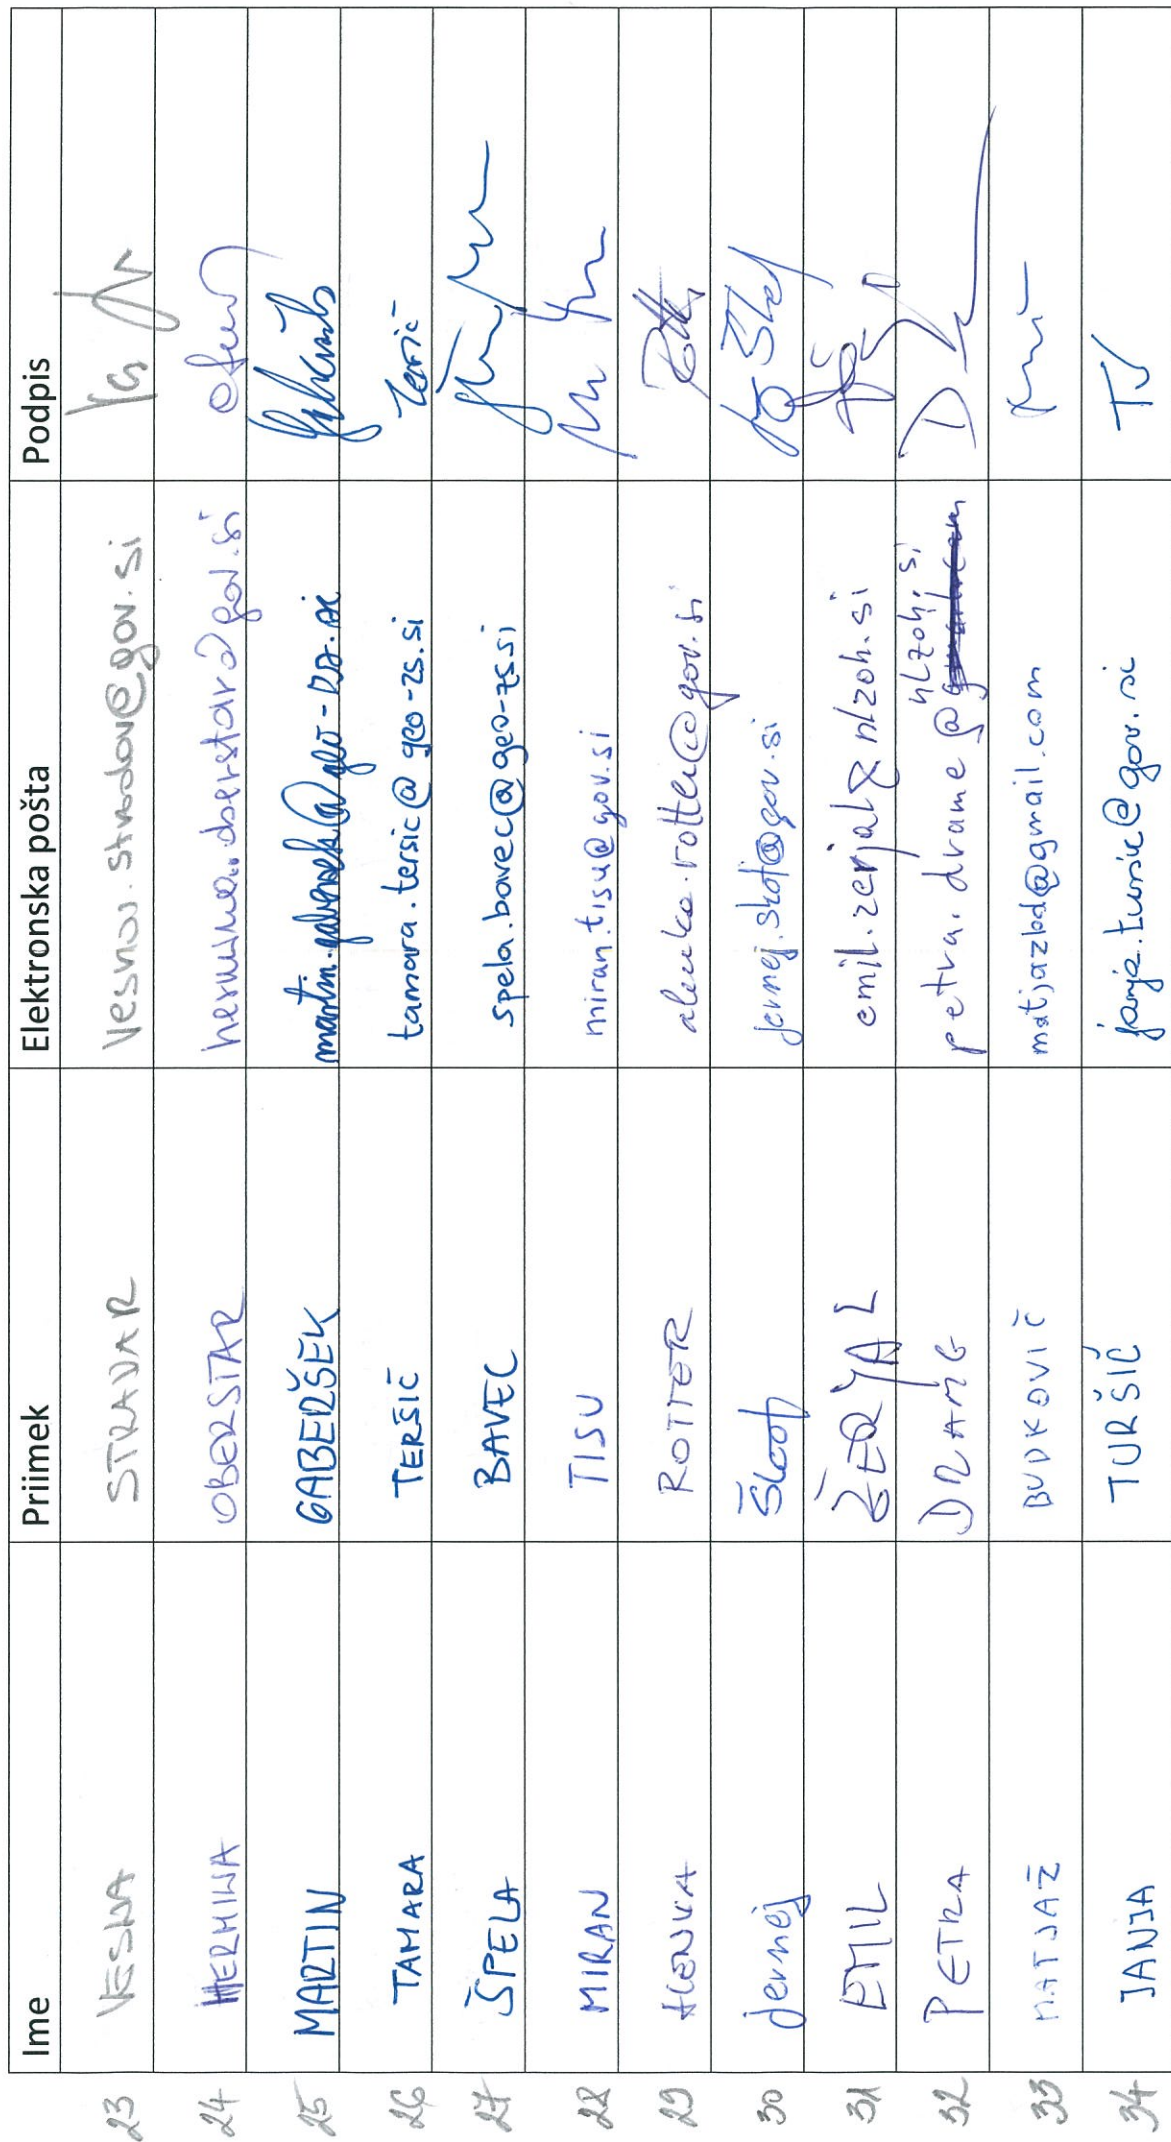 Ime Priimek Elektronska pošta Podpis
23 VESNA STRADAR vesna.stradar@gov.si
24 HERMINA OBERSTAR hermina.oberstar@gov.si
25 MARTIN GABERŠEK martin.gabersek@geo-zs.si
26 TAMARA TERŠIČ tamara.tersic@geo-zs.si Teršič
27 ŠPELA BAVEC spela.bavec@geo-zs.si
28 MIRAN TISU miran.tisu@gov.si
29 ALENKA ROTTER alenka.rotter@gov.si
30 Jernej Škof jernej.skof@gov.si
31 EMIL ŽERJAL emil.zerjal@nlzoh.si
32 PETRA DRAME petra.drame@nlzoh.si
33 MATJAŽ BUDKOVIČ matjazbd@gmail.com
34 JANJA TURŠIČ janja.tursic@gov.si TJ